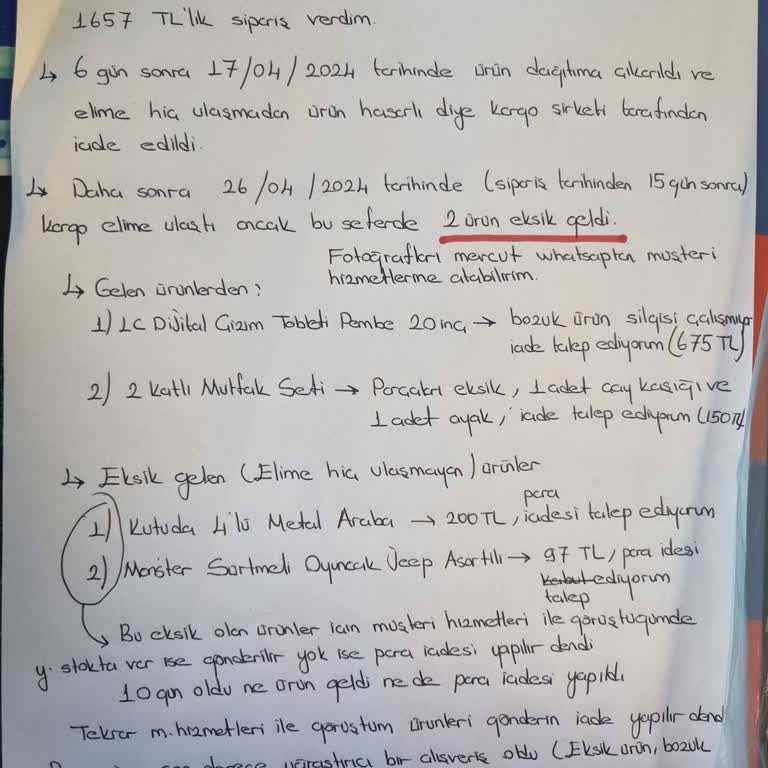 1657 TL'lik sipariş verdim.
↳ 6 gün sonra 17/04/2024 tarihinde ürün dağıtıma çıkarıldı ve
elime hiç ulaşmadan ürün hasarlı diye kargo şirketi tarafından
iade edildi.
↳ Daha sonra 26/04/2024 tarihinde (sipariş tarihinden 15 gün sonra)
kargo elime ulaştı ancak bu seferde 2 ürün eksik geldi.
Fotoğrafları mevcut whatsaptan müşteri
hizmetlerine atabilirim.
↳ Gelen ürünlerden:
1) LC Dijital Çizim Tableti Pembe 20 inç → bozuk ürün silgisi çalışmıyor
iade talep ediyorum (675 TL)
2) 2 Katlı Mutfak Seti → Parçaları eksik, 1 adet çay kaşığı ve
1 adet ayak, iade talep ediyorum (150 TL
↳ Eksik gelen (Elime hiç ulaşmayan) ürünler
1) Kutuda 4'lü Metal Araba → 200 TL, para iadesi talep ediyorum
2) Monster Sürtmeli Oyuncak Jeep Asortili → 97 TL, para idesi
talep ediyorum
Bu eksik olan ürünler için müşteri hizmetleri ile görüştüğümde
y. stokta var ise gönderilir yok ise para iadesi yapılır dendi
10 gün oldu ne ürün geldi ne de para iadesi yapıldı
Tekrar m.hizmetleri ile görüştüm ürünleri gönderin iade yapılır dend
derece uğraştırıcı bir alışveriş oldu (Eksik ürün, bozuk